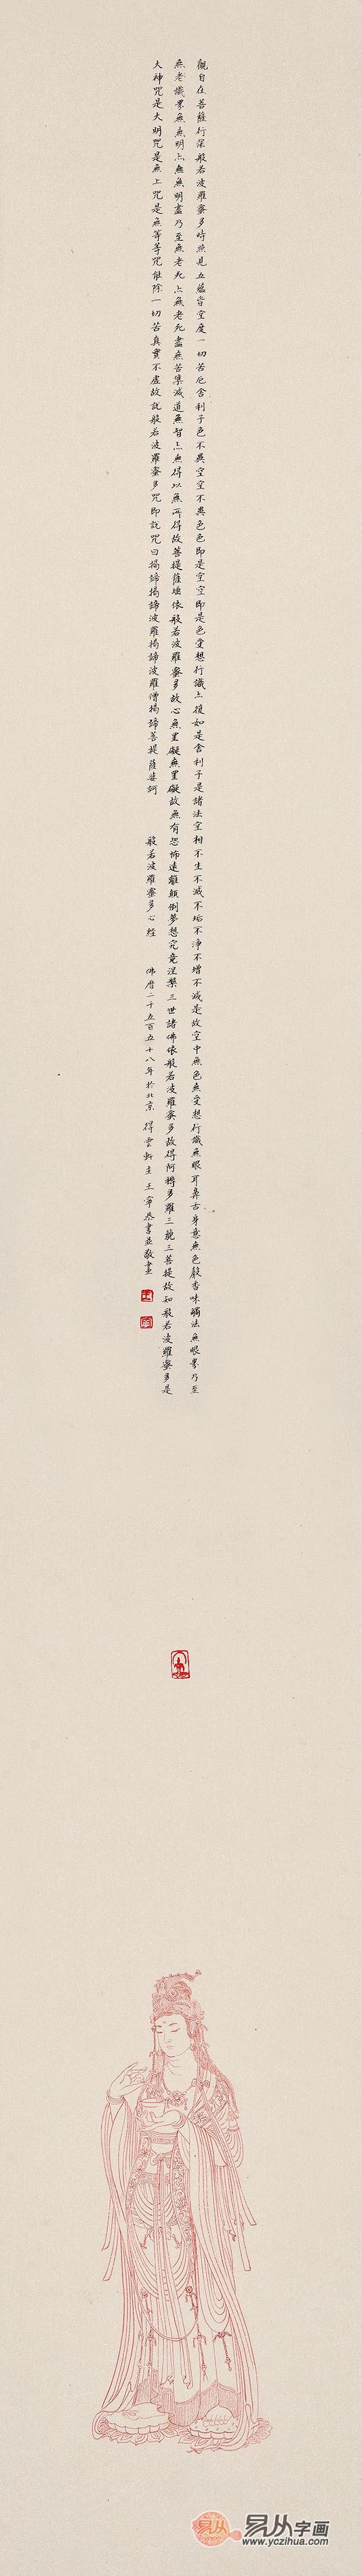 觀自在菩薩行深般若波羅蜜多時照見五蘊皆空度一切苦厄舍利子色不異空空不異色色即是空空即是色受想行識亦復如是舍利子是諸法空相不生不滅不垢不淨不增不減是故空中無色無受想行識無眼耳鼻舌身意無色聲香味觸法無眼界乃至
無老識界無無明亦無無明盡乃至無老死亦無老死盡無苦集滅道無智亦無得以無所得故菩提薩埵依般若波羅蜜多故心無罣礙無罣礙故無有恐怖遠離顛倒夢想究竟涅槃三世諸佛依般若波羅蜜多故得阿耨多羅三藐三菩提故知般若波羅蜜多是
大神咒是大明咒是無上咒是無等等咒能除一切苦真實不虛故說般若波羅蜜多咒即說咒曰揭諦揭諦波羅揭諦波羅僧揭諦菩提薩婆訶
般若波羅蜜多心經
佛曆二千五百五十八年於北京得雲軒主王寧恭書並敬畫
易从字画
www.yczihua.com